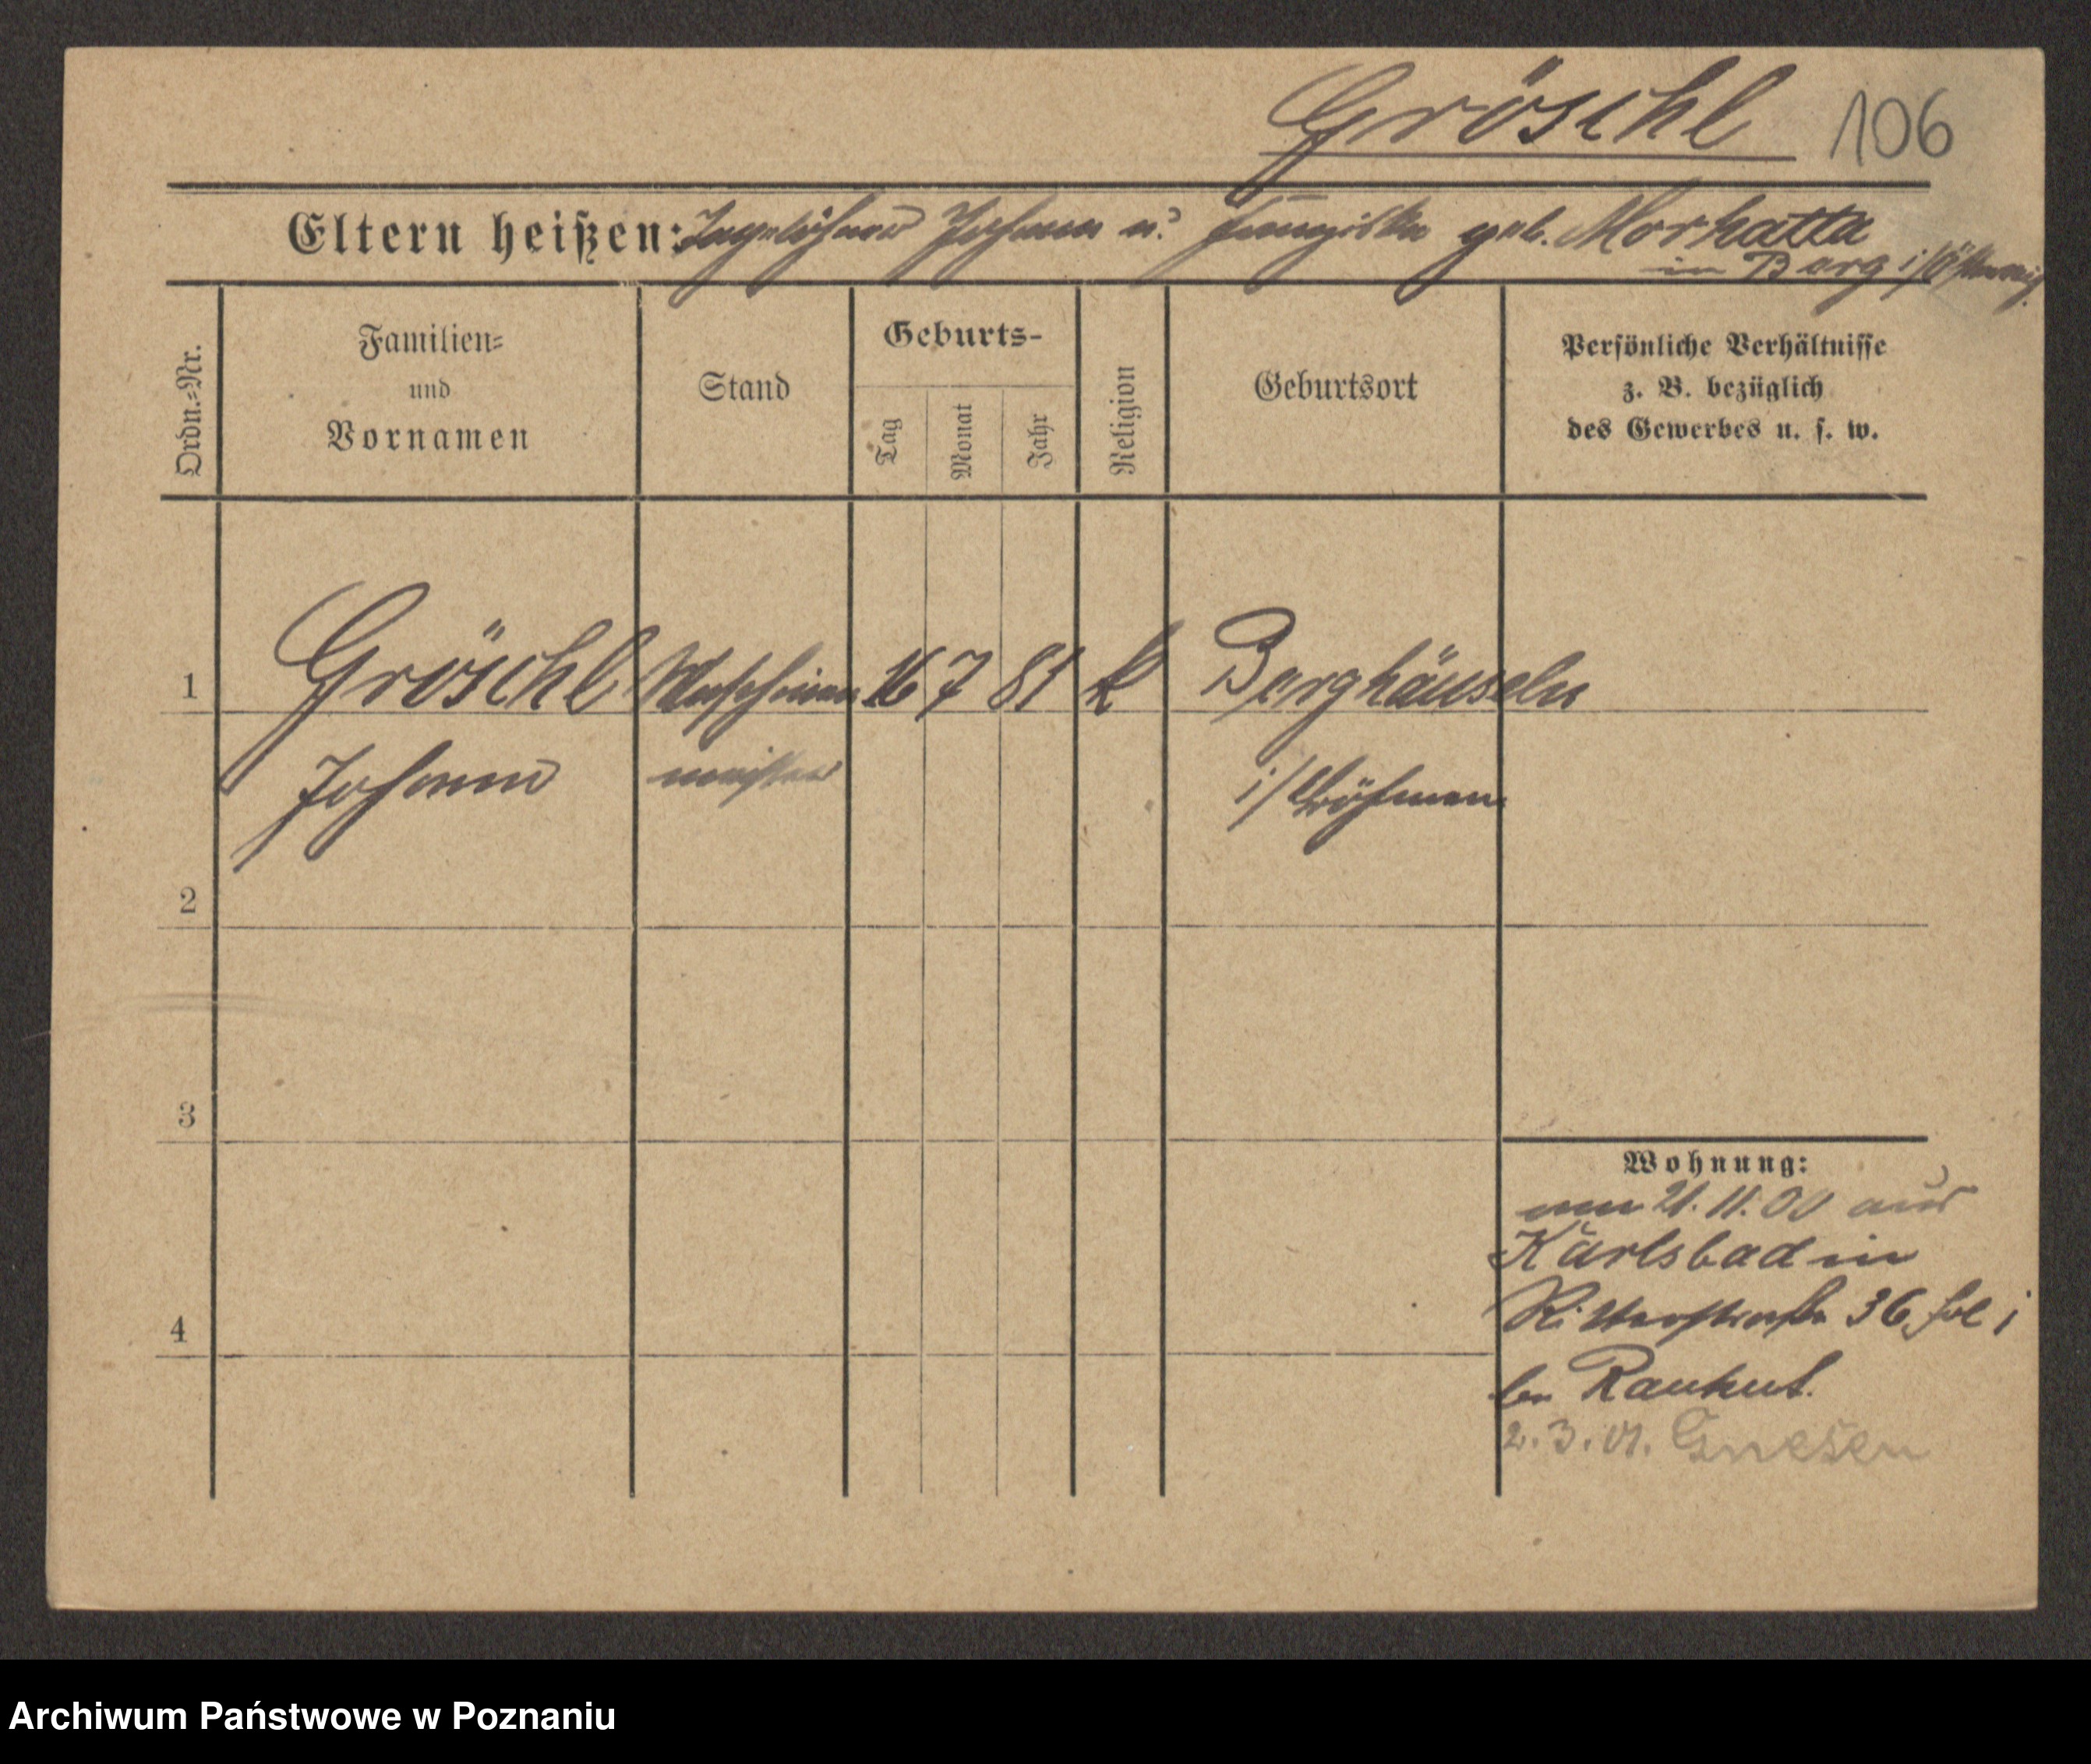 Gröschl 106
Eltern heißen: Tagelöhner Johann u. Franziska geb. Morhatta
in Berg i/Österreich
Ordn.-Nr.
Familien-
und
Vornamen
Stand
Geburts-
Tag
Monat
Jahr
Religion
Geburtsort
Persönliche Verhältnisse
z. B. bezüglich
des Gewerbes u. s. w.
1 Gröschl Maschinen 16 7 81 k Berghäuseln
Johann meister i/Böhmen
2
3
4
Wohnung:
am 21.11.00 aus
Karlsbad in
Ritterstraße 36
bei Rauhut.
2.3.01. Gnesen
Archiwum Państwowe w Poznaniu